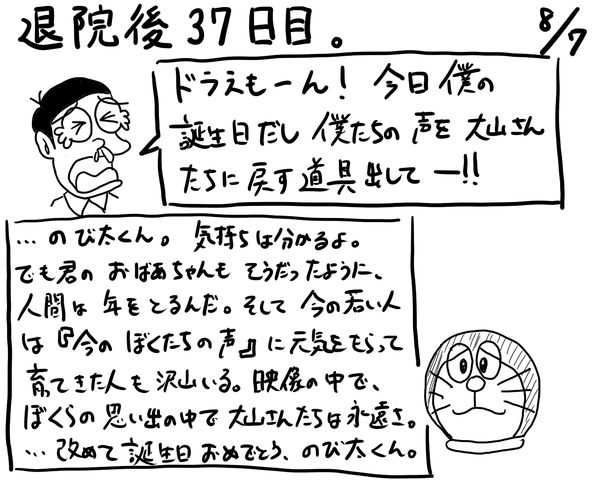 退院後37日目。
8/7
ドラえもーん! 今日僕の
誕生日だし 僕たちの声を 大山さん
たちに戻す道具出してー!!
… のび太くん。 気持ちは分かるよ。
でも君の おばあちゃんも そうだったように、
人間は 年をとるんだ。そして 今の若い人
は『今の ぼくたちの声』に元気をもらって
育てきた人も 沢山いる。映像の中で、
ぼくらの 思い出の中で 大山さんたちは永遠さ。
… 改めて 誕生日 おめでとう、のび太くん。